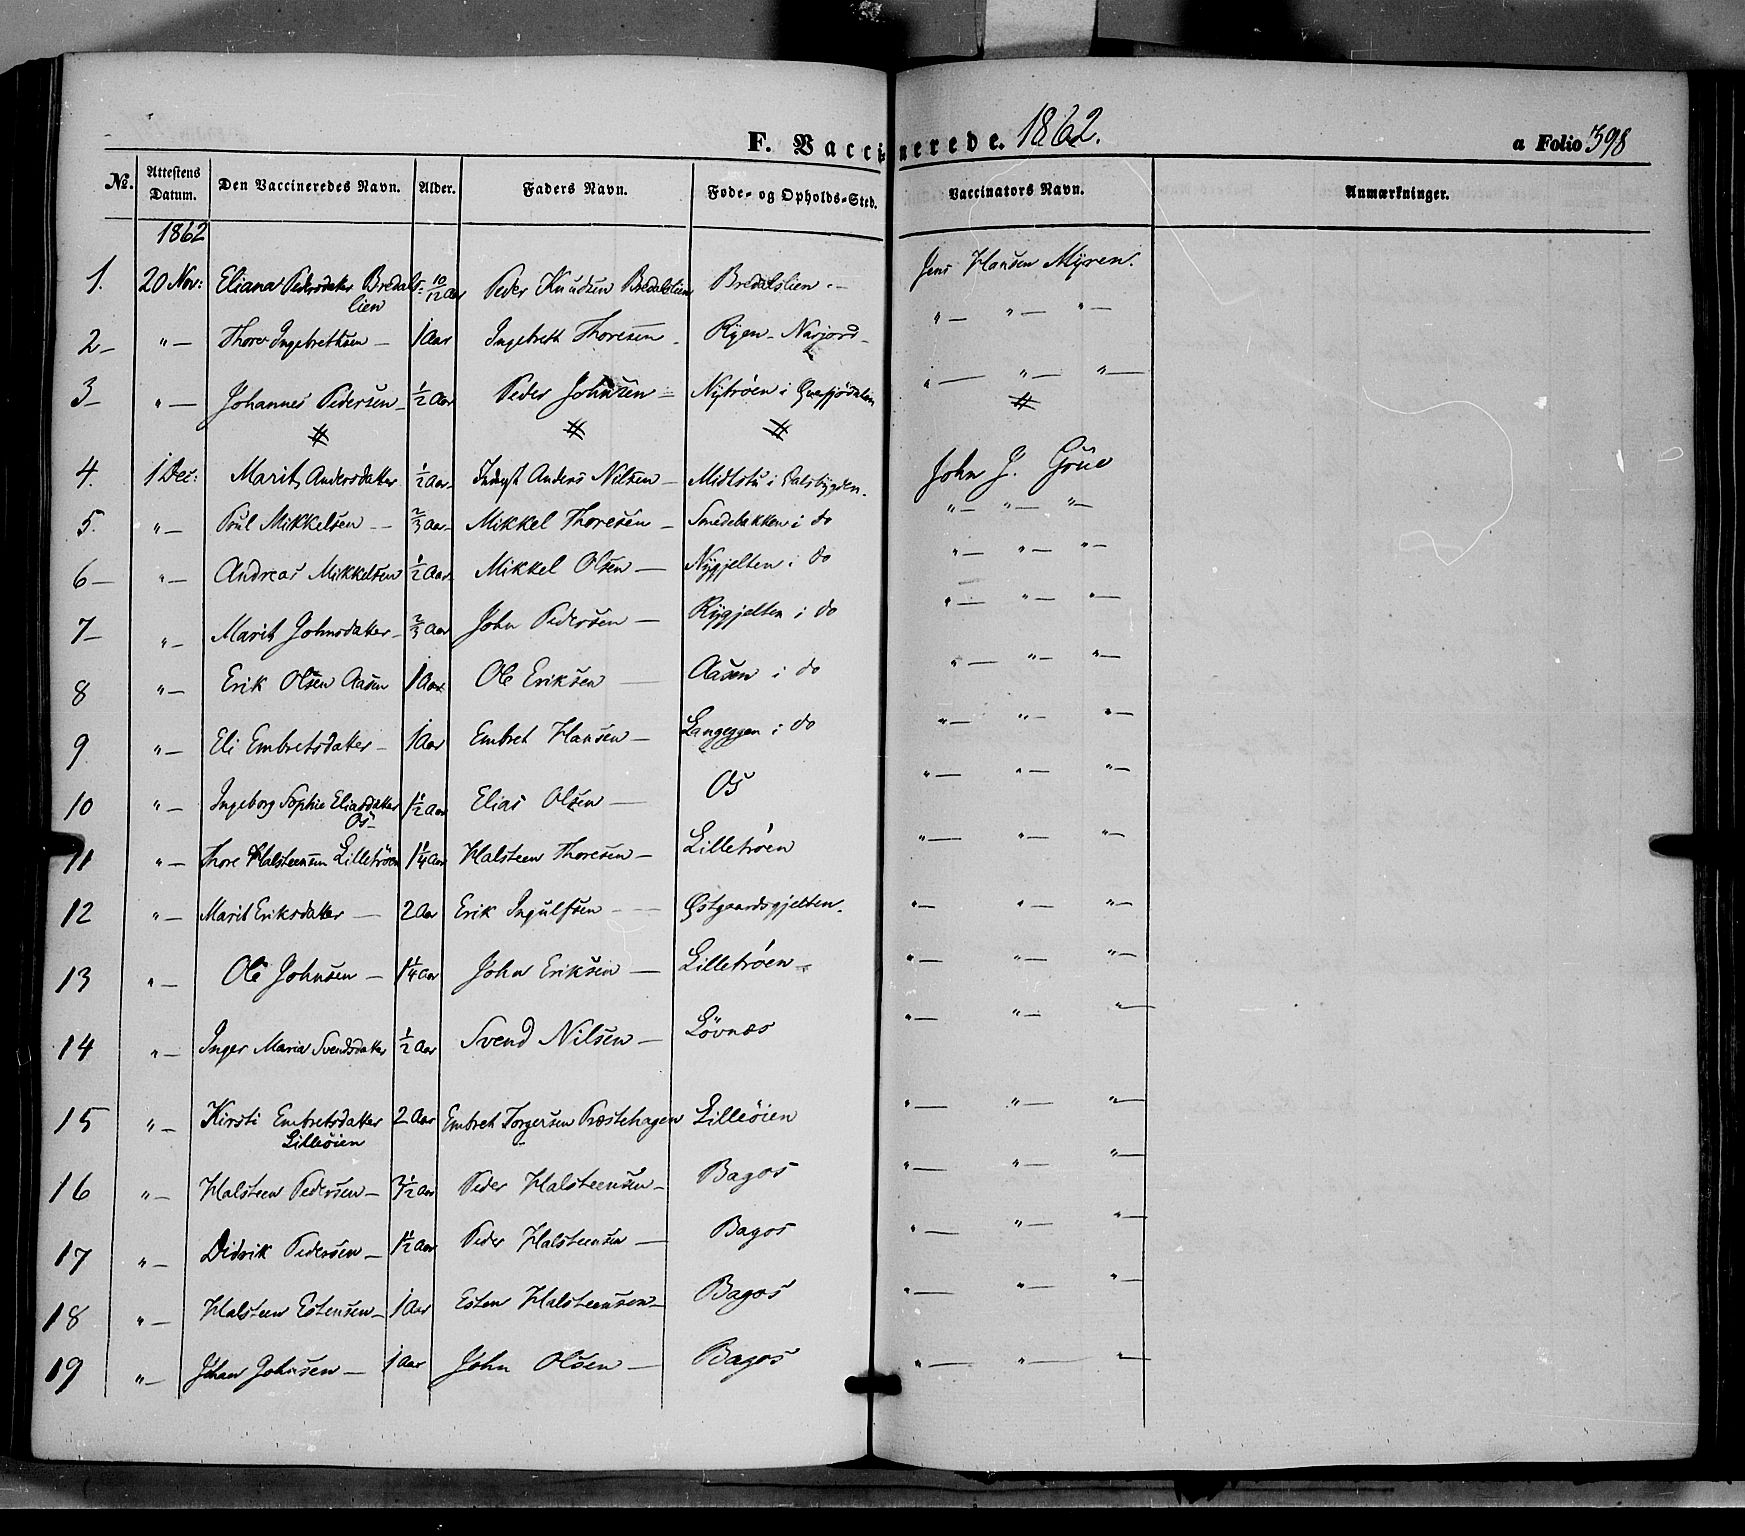 F. Vaccinerede. 1862. a Folio 398
No. Attestens Datum. Den Vaccineredes Navn. Alder. Faders Navn. Føde- og Opholds-Sted. Vaccinators Navn. Anmærkninger.
1862
1. 20 Nov: Eliana Pedersdatter Bredals= 10/12 Aar Peder Knudsen Bredalslien Bredalslien.- Jens Hansen Myren.
lien
2- "- Thore Ingebrethsen - 1 Aar Ingebreth Thoresen - Ryen - Narjord - "- "- "-
3- "- Johannes Pedersen - 1/2 Aar Peder Johnsen = Nytrøen i "- "- "-
# # # #
4. 1 Dec: Marit Andersdatter 1/2 Aar- Anders Nilsen - Midtstu i Dalsbygden. John J. Grue
5. "- Poul Mikkelsen - 2/3 Aar- Mikkel Thoresen - Smedebakken i do "- "- "-
6- "- Andreas Mikkelsen 1/2 Aar Mikkel Olsen - Nygjelten i do "- "- "-
7- "- Marit Johnsdatter - 2/3 Aar John Pedersen - Rygjelten i do "- "- "-
8 "- Erik Olsen Aasen 1 Aar Ole Eriksen - Aasen i do "- "- "-
9 "- Eli Embretsdatter - 1 Aar Embret Hansen - Langeggen i do "- "- "-
10 "- Ingeborg Sophie Eliasdatter 1 1/2 Aar Elias Olsen - Os "- "- "-
Os-
11 "- Thore Halsteensen Lilletrøen 1 1/4 Aar Halsteen Thoresen - Lilletrøen "- "- "-
12 "- Marit Eriksdatter - 2 Aar Erik Ingulfsen - - Østgaardsgjelten. "- "- "-
13 "- Ole Johnsen - 1 1/4 Aar John Eriksen - Lilletrøen - "- "- "-
14 "- Inger Maria Svendsdatter 1/2 Aar Svend Nilsen - Løvnæs "- "- "-
15 "- Kirsti Embretsdatter 2 Aar Embret Torgersen Præstehagen Lilleøien "- "- "-
Lilleøien
16 "- Halsteen Pedersen - 3 1/2 Aar Peder Halsteensen - Bagos "- "- "-
17 "- Didrik Pedersen - 1 1/2 Aar Peder Halsteensen - Bagos "- "- "-
18 "- Halsteen Estensen - 1 Aar Esten Halsteensen - Bagos "- "- "-
19 "- Johan Johnsen - 1 Aar John Olsen - Bagos "- "- "-